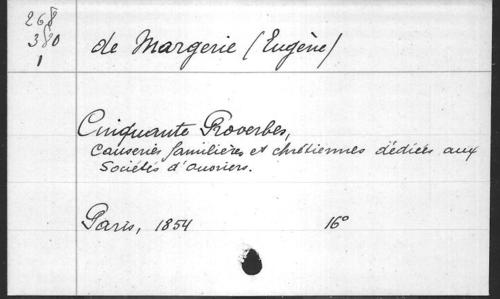 268
380
1
de Margerie (Eugène)
Cinquante Proverbes,
Causeries familières et chrétiennes dédiées aux
Sociétés d'ouvriers.
Paris, 1854 16°